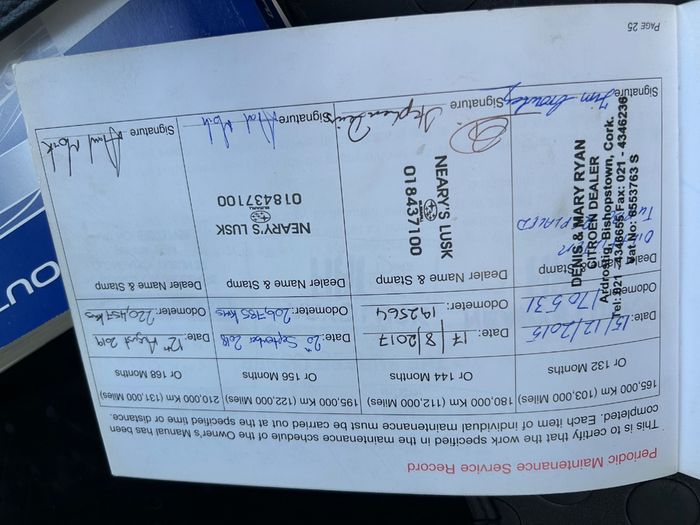 Periodic Maintenance Service Record
This is to certify that the work specified in the maintenance schedule of the Owner's Manual has been
completed. Each item of individual maintenance must be carried out at the specified time or distance.
165,000 Km (103,000 Miles)
Or 132 Months
Date: 15/12/2015
Odometer: 170531
Dealer Name & Stamp
DENIS & MARY RYAN
CITROEN DEALER
Ardrostig, Bishopstown, Cork.
Tel: 021 - 4346655, Fax: 021 - 4346236
Vat No: 8553763 S
Signature
180,000 Km (112,000 Miles)
Or 144 Months
Date: 17/8/2017
Odometer: 192564
Dealer Name & Stamp
NEARY'S LUSK
SUBARU
01 8437100
Signature
195,000 Km (122,000 Miles)
Or 156 Months
Date: 20th September 2018
Odometer: 206,785 kms
Dealer Name & Stamp
NEARY'S LUSK
SUBARU
01 8437100
Signature
210,000 Km (131,000 Miles)
Or 168 Months
Date: 12th August 2019
Odometer: 220,457 kms
Dealer Name & Stamp
Signature
PAGE 25
OUT